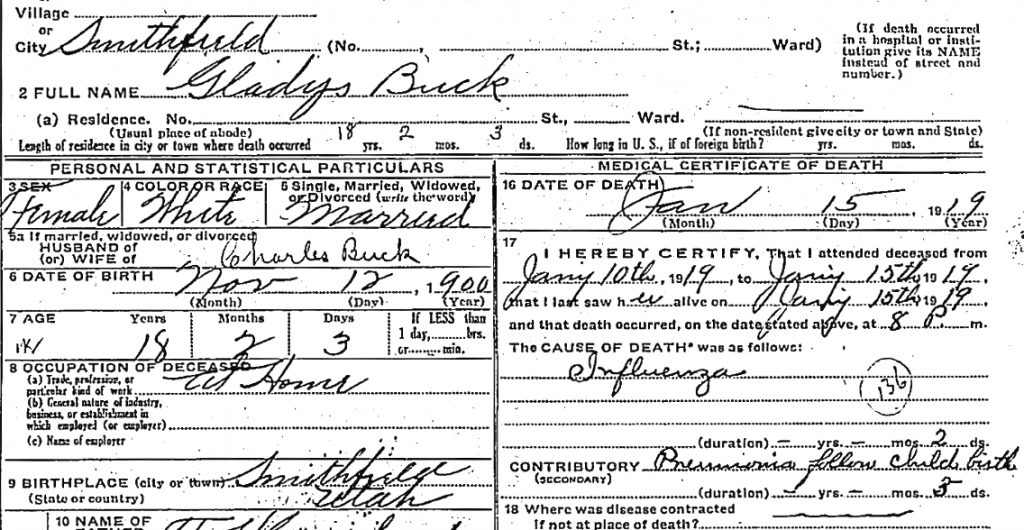 Village
or
City Smithfield (No. , St.; Ward)
(If death occurred
in a hospital or insti-
tution give its NAME
instead of street and
number.)
2 FULL NAME Gladys Buck
(a) Residence. No. St., Ward.
(Usual place of abode) (If non-resident give city or town and State)
Length of residence in city or town where death occurred 18 yrs. 2 mos. 3 ds. How long in U. S., if of foreign birth? yrs. mos. ds.
PERSONAL AND STATISTICAL PARTICULARS
3 SEX 4 COLOR OR RACE 5 Single, Married, Widowed,
or Divorced (write the word)
Female White Married
5a If married, widowed, or divorced
HUSBAND of
(or) WIFE of Charles Buck
6 DATE OF BIRTH Nov 12, 1900
(Month) (Day) (Year)
7 AGE Years Months Days If LESS than
1 day, hrs.
or min.
18 2 3
8 OCCUPATION OF DECEASED
(a) Trade, profession, or
particular kind of work At Home
(b) General nature of industry,
business, or establishment in
which employed (or employer)
(c) Name of employer
9 BIRTHPLACE (city or town) Smithfield
(State or country) Utah
10 NAME OF
MEDICAL CERTIFICATE OF DEATH
16 DATE OF DEATH
Jan 15 1919
(Month) (Day) (Year)
17
I HEREBY CERTIFY, That I attended deceased from
Jany 10th, 1919, to Jany 15th 1919,
that I last saw her alive on Jany 15th 1919
and that death occurred, on the date stated above, at 8 P. m.
The CAUSE OF DEATH* was as follows:
Influenza
136
(duration) - yrs. - mos. 2 ds.
CONTRIBUTORY Pneumonia follow child birth
(SECONDARY)
(duration) yrs. mos. 5 ds.
18 Where was disease contracted
If not at place of death?